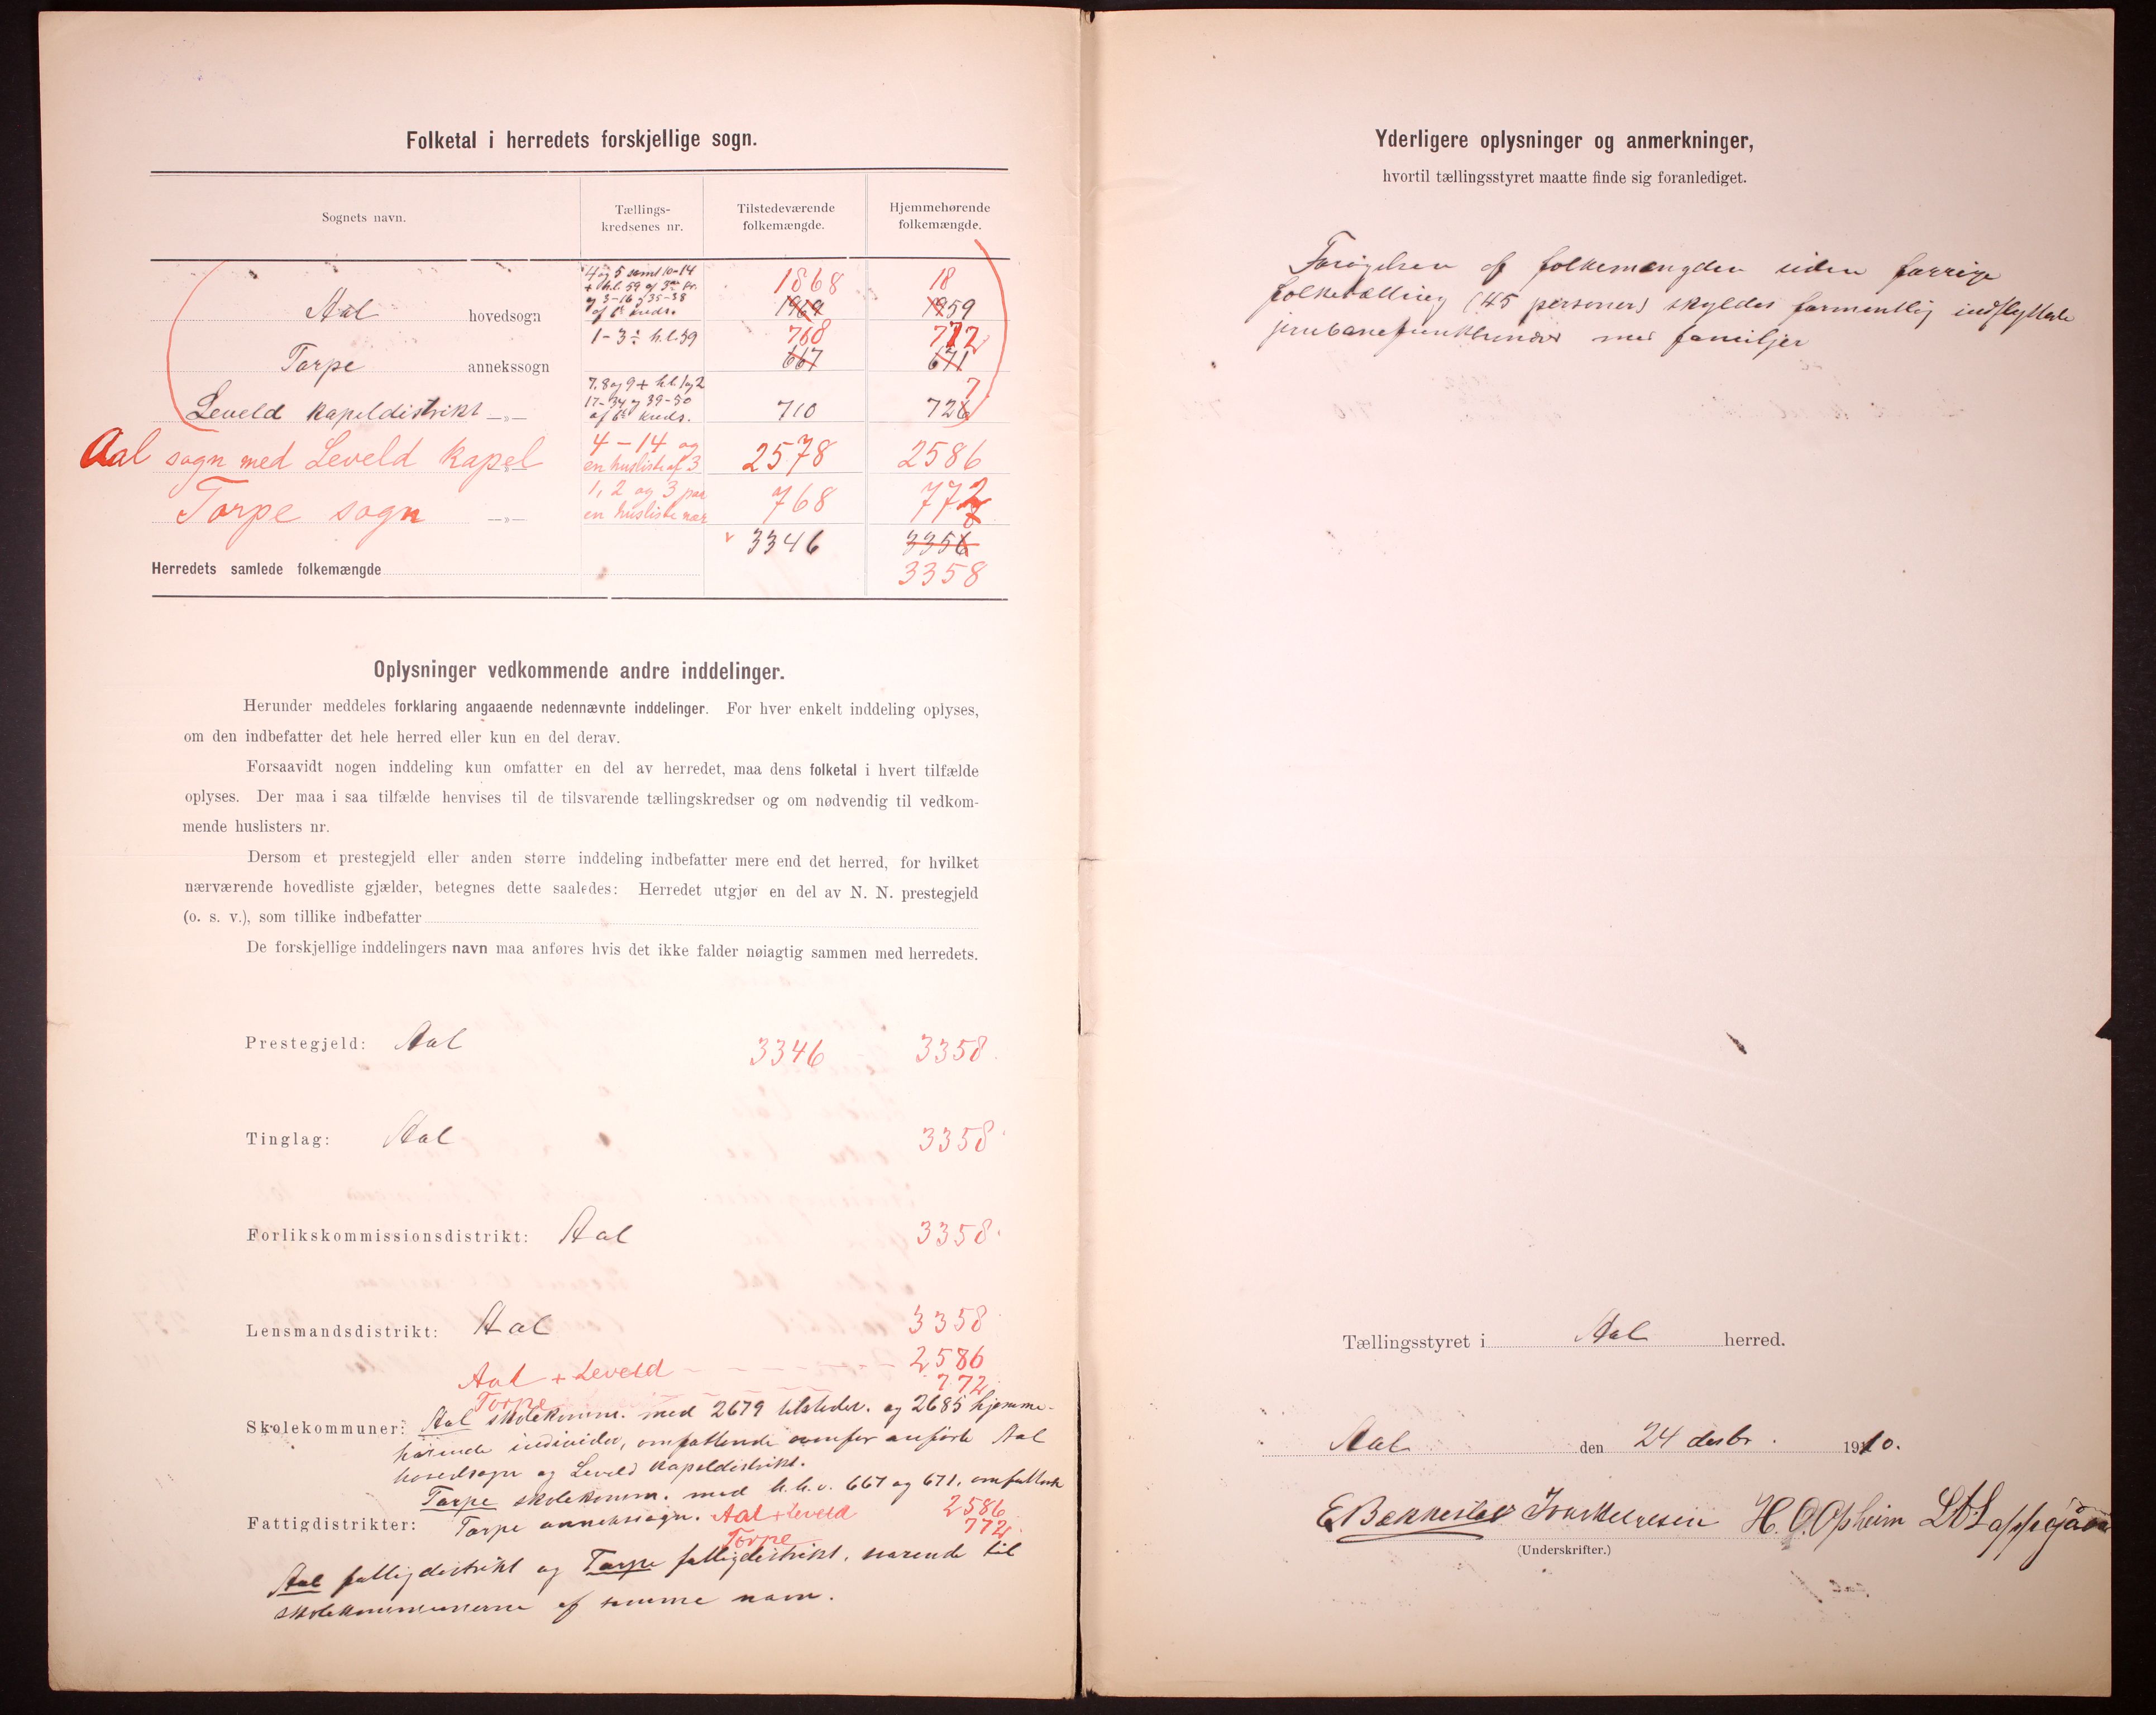 Folketal i herredets forskjellige sogn.
Sognets navn.
Tællings-
kredsenes nr.
Tilstedeværende
folkemængde.
Hjemmehørende
folkemængde.
4 og 5 samt 10-14
+ h.l. 59 af 3die kr.
og 3-16 og 35-38
af 6te kreds.
1868
18
Aal hovedsogn 1969 1959
1-3 ÷ h.l. 59 768 772
Torpe annekssogn 667 671
7. 8 og 9 + h.l. 1 og 2
17-34 og 39-50
af 6te kreds.
7
Leveld kapeldistrikt —„— 710 726
Aal sogn med Leveld kapel 4-14 og
en husliste af 3
2578 2586
Torpe sogn —„— 1, 2 og 3 paa
en husliste nær
768 772
3346 3356
Herredets samlede folkemængde 3358
Oplysninger vedkommende andre inddelinger.
Herunder meddeles forklaring angaaende nedennævnte inddelinger. For hver enkelt inddeling oplyses,
om den indbefatter det hele herred eller kun en del derav.
Forsaavidt nogen inddeling kun omfatter en del av herredet, maa dens folketal i hvert tilfælde
oplyses. Der maa i saa tilfælde henvises til de tilsvarende tællingskredser og om nødvendig til vedkom-
mende huslisters nr.
Dersom et prestegjeld eller anden større inddeling indbefatter mere end det herred, for hvilket
nærværende hovedliste gjælder, betegnes dette saaledes: Herredet utgjør en del av N. N. prestegjeld
(o. s. v.), som tillike indbefatter
De forskjellige inddelingers navn maa anføres hvis det ikke falder nøiagtig sammen med herredets.
Prestegjeld: Aal 3346 3358
Tinglag: Aal 3358
Forlikskommissionsdistrikt: Aal 3358
Lensmandsdistrikt: Aal 3358
Aal + Leveld - - - - - 2586
Torpe - - - - - 772
Skolekommuner: Aal skolekomm. med 2679 tilstedev. og 2685 hjemme-
hørende individer, omfattende ovenfor anførte Aal
hovedsogn og Leveld kapeldistrikt.
Torpe skolekomm. med h.h.v. 667 og 671, omfattende
Fattigdistrikter: Torpe annekssogn. Aal + Leveld 2586
Torpe 772
Aal fattigdistrikt og Torpe fattigdistrikt, svarende til
skolekommunerne af samme navn.
Yderligere oplysninger og anmerkninger,
hvortil tællingsstyret maatte finde sig foranlediget.
Forøgelsen af folkemængden siden forrige
folketælling (45 personer) skyldes formentlig indflyttede
jernbanefunktionærer med familjer
Tællingsstyret i Aal herred.
Aal den 24 desbr. 1910.
H. O. Opheim
(Underskrifter.)